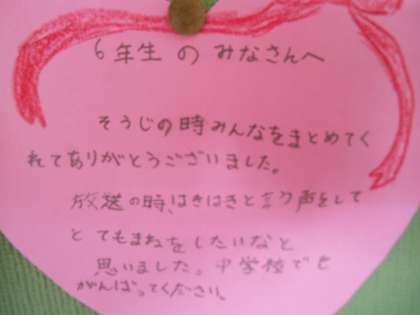 6年生のみなさんへ
そうじの時みんなをまとめてく
れてありがとうございました。
放送の時、はきはきと 声をして
とてもまねをしたいなと
思いました。中学校でも
がんばってください。